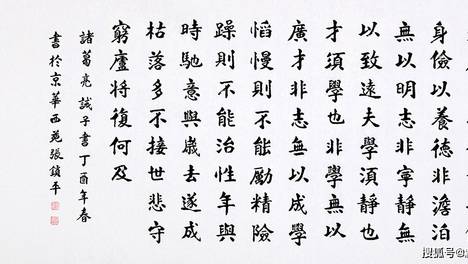 身儉以養德非澹泊
無以明志非寧靜無
以致遠夫學須靜也
才須學也非學無以
廣才非志無以成學
慆慢則不能勵精險
躁則不能治性年與
時馳意與歲去遂成
枯落多不接世悲守
窮廬將復何及
諸葛亮誡子書丁酉年春
書於京華西苑張鎖平
搜狐号@